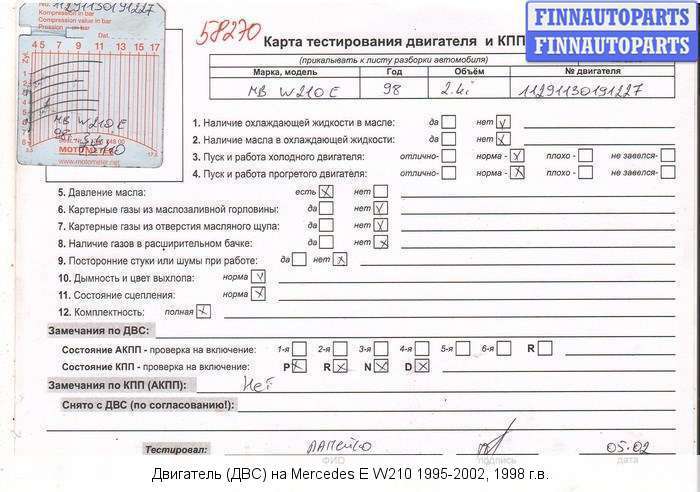 No. 11291130191227
Kompression in bar
Compression value in bar
Pression en bar
Dat.
4 5 7 9 11 13 15 17
MB W210E
98
MOTOMETER
www.motometer.net
17.5
58270
FINNAUTOPARTS
FINNAUTOPARTS
Карта тестирования двигателя и КПП
(прикалывать к листу разборки автомобиля)
Марка, модель Год Объём № двигателя
MB W210E 98 2.4i 11291130191227
1. Наличие охлаждающей жидкости в масле: да нет v
2. Наличие масла в охлаждающей жидкости: да нет v
3. Пуск и работа холодного двигателя: отлично- норма - v плохо - не завелся-
4. Пуск и работа прогретого двигателя: отлично- норма - x плохо - не завелся-
5. Давление масла: есть x нет
6. Картерные газы из маслозаливной горловины: да нет v
7. Картерные газы из отверстия масляного щупа: да нет v
8. Наличие газов в расширительном бачке: да нет x
9. Посторонние стуки или шумы при работе: да нет x
10. Дымность и цвет выхлопа: норма v
11. Состояние сцепления: норма x
12. Комплектность: полная x
Замечания по ДВС:
Состояние АКПП - проверка на включение: 1-я 2-я 3-я 4-я 5-я 6-я R
Состояние КПП - проверка на включение: P x R x N x D x
Замечания по КПП (АКПП): Нет
Снято с ДВС (по согласованию!):
Тестировал: 05.02
ФИО подпись дата
Двигатель (ДВС) на Mercedes E W210 1995-2002, 1998 г.в.